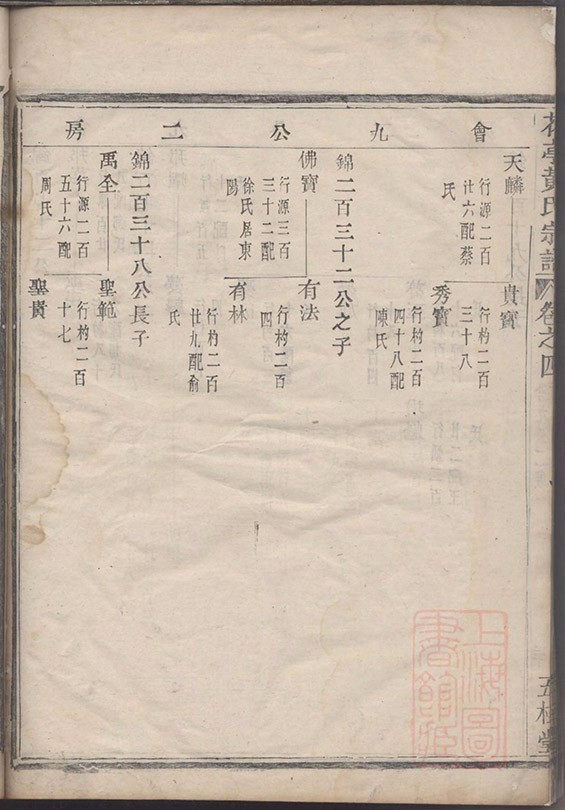 會九公二房
天麟
行源二百
廿六配蔡
氏
貴寶
行杓二百
三十八
秀寶
行杓二百
四十八配
陳氏
錦二百三十二公之子
佛寶
行源三百
三十二配
徐氏居東
陽
有法
行杓二百
四
有林
行杓二百
廿九配俞
氏
錦二百三十八公長子
禹全
行源二百
五十六配
周氏
聖範
行杓二百
十七
聖貴
黃氏宗譜
卷之四
上海圖
書館藏